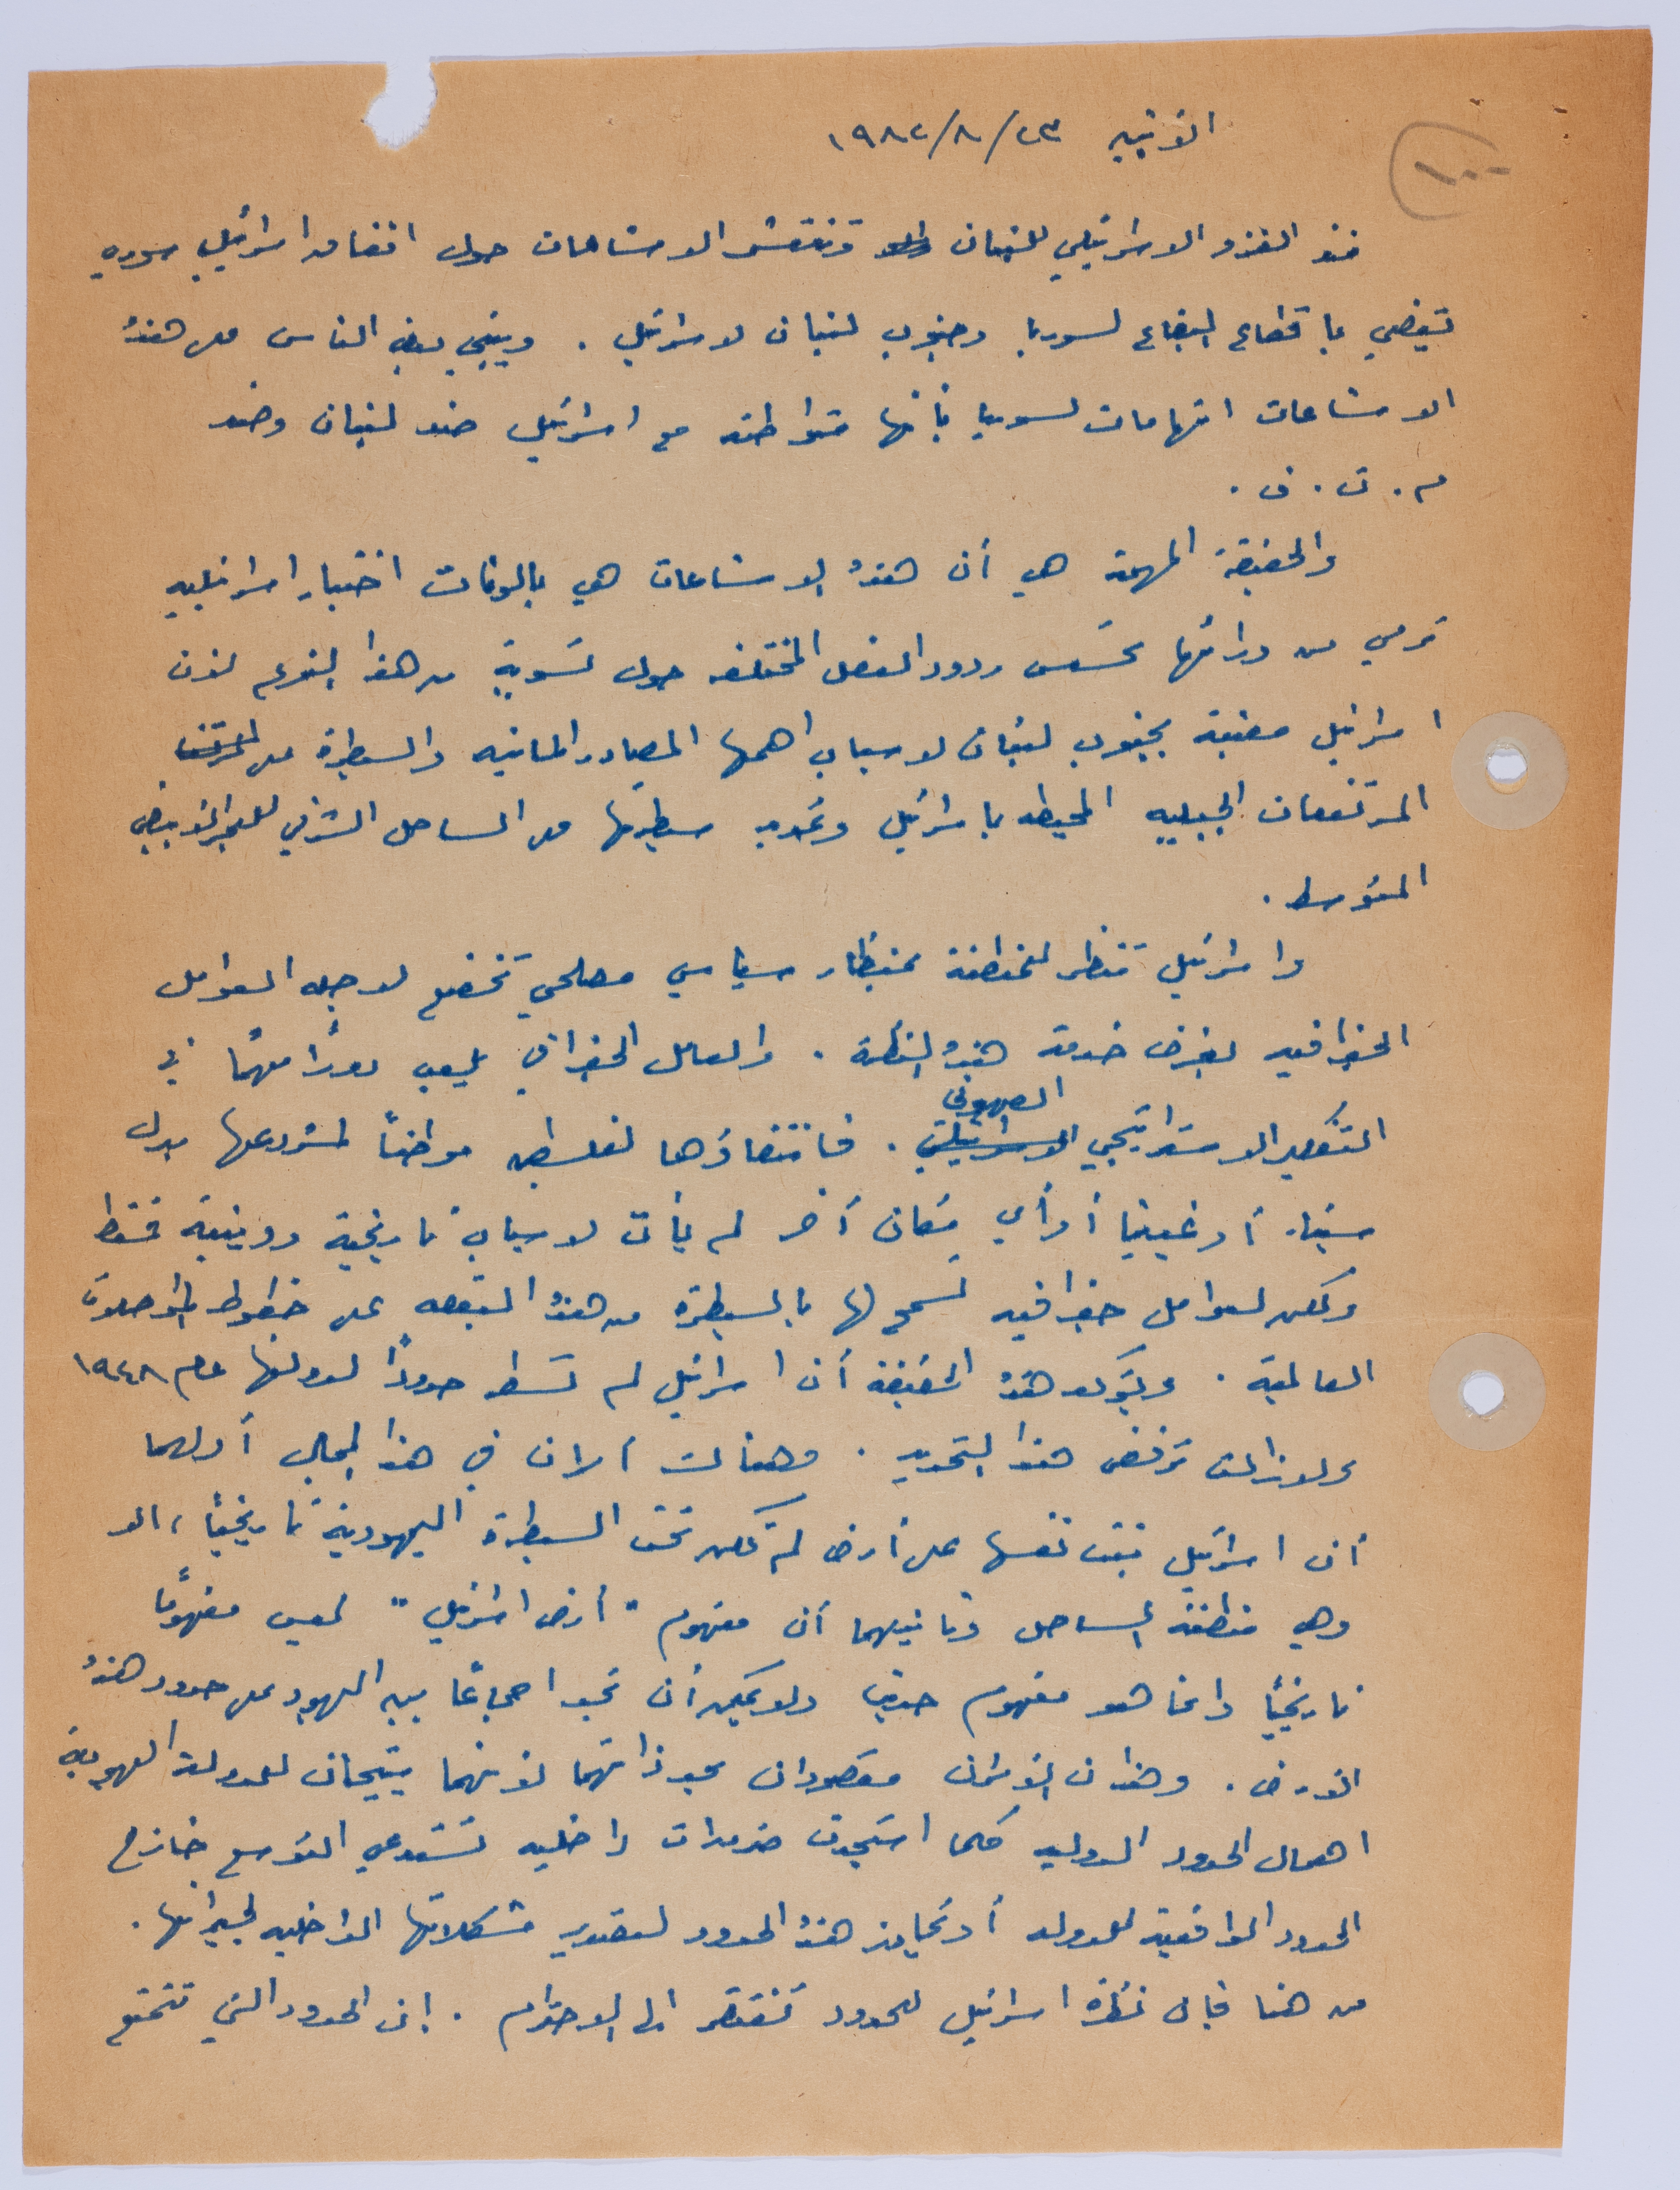 ١٠٠
الاثنين ٢٣/٨/١٩٨٢
منذ الغزو الاسرائيلي للبنان وتنتشر الاشاعات حول اتفاق اسرائيلي سوري
يقضي باقتطاع البقاع لسوريا وجنوب لبنان لاسرائيل . ويبني بعض الناس على هذه
الاشاعات اتهامات لسوريا بأنها متواطئه مع اسرائيل ضد لبنان وضد
م . ت . ف .
والحقيقة المهمة هي أن هذه الاشاعات هي بالونات اختبار اسرائيليه
ترمي من ورائها تحسس ردود الفعل المختلفه حول تسوية من هذا النوع لأن
اسرائيل معنية بجنوب لبنان لاسباب اهمها المصادر المائيه والسيطرة على
المرتفعات الجبليه المحيطه باسرائيل وتمديد سيطرتها على الساحل الشرقي للبحر الأبيض
المتوسط .
واسرائيل تنظر للمنطقة بمنظار سياسي مصلحي تخضع لاجله العوامل
الجغرافيه لغرض خدمة هذه النظرة . والعامل الجغرافي يلعب دورًا مهمًا في
التفكير الاستراتيجي الاسرائيلي الصهيوني . فانتقاؤها لفلسطين موطنًا لمشروعها بدل
سيناء أو غينيا أو أي مكان آخر لم يأت لاسباب تاريخية ودينية فقط
ولكن لعوامل جغرافيه تسمح لها بالسيطرة من هذه البقعه على خطوط المواصلات
العالمية . ويؤكد هذه الحقيقة أن اسرائيل لم تسطر حدودًا لدولتها عام ١٩٤٨
ولا زالت ترفض هذا التحديد . وهنالك أمران في هذا المجال أولهما
أن اسرائيل بنت نفسها على أرض لم تكن تحت السيطرة اليهودية تاريخيًا ، الا
وهي منطقة الساحل وثانيهما أن مفهوم " أرض اسرائيل " ليس مفهومًا
تاريخيًا وانما هو مفهوم حديث ولا يمكن أن نجد اجماعًا بين اليهود على حدود هذه
الأرض . وهذان الأمران مقصودان بحد ذاتهما لأنهما يتيحان للدولة اليهودية
اهمال الحدود الدوليه كلما استجدت ضرورات داخليه تستدعي التوسع خارج
الحدود الواقعية للدوله أو تجاوز هذه الحدود لتصدير مشكلاتها الداخليه لجيرانها .
من هنا فان نظرة اسرائيل للحدود تفتقر الى الاحترام . إن الحدود التي تتمتع